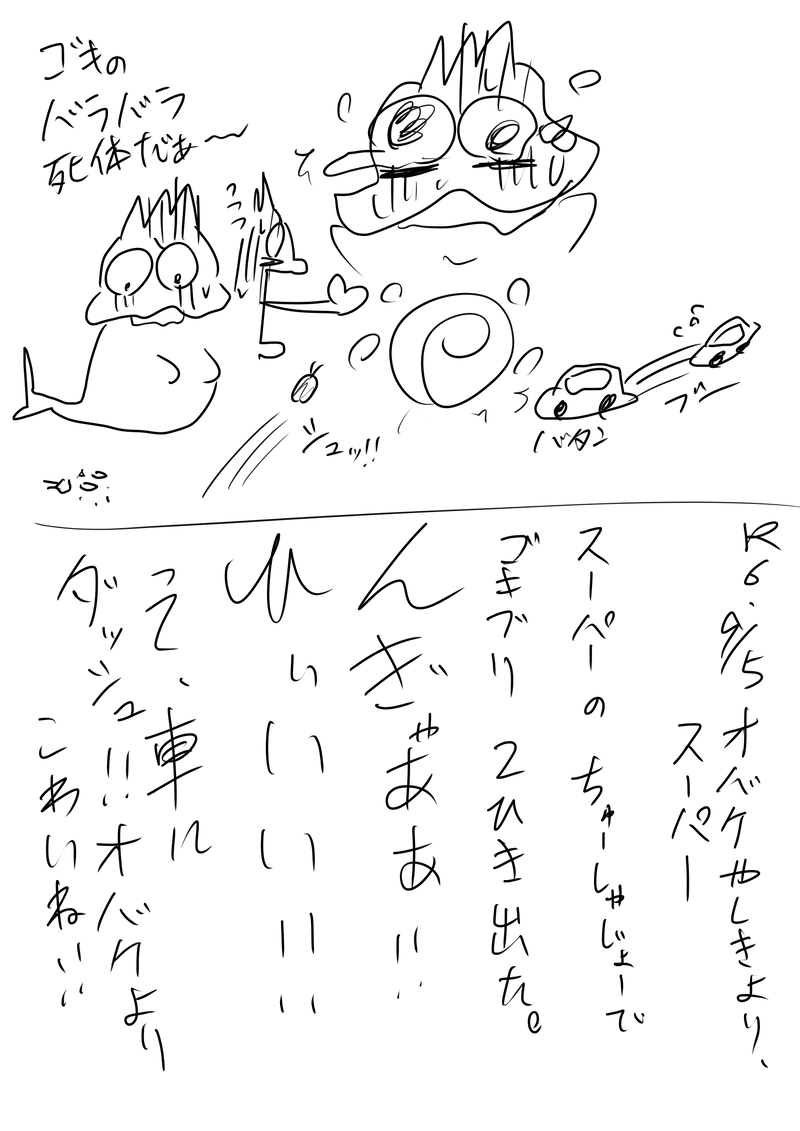 ゴキの
バラバラ
死体だぁ〜
シュッ!!
バタン
ブー
R6.9/5 オバケやしきより、
スーパー
スーパーの ちゅーしゃじょーで
ゴキブリ 2ひき出た。
んぎゃああ!!
ひぃいい!!
って、車に
ダッシュ!!オバケより
こわいね!!